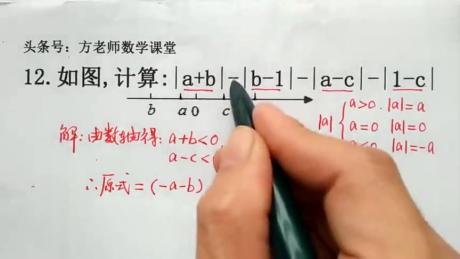 头条号：方老师数学课堂
12.如图,计算:|a+b|-|b-1|-|a-c|-|1-c|
b a 0 c
解：由数轴得: a+b<0,
a-c<
∴原式=(-a-b)
|a| { a>0. |a|=a
a=0 |a|=0
<0 |a|=-a